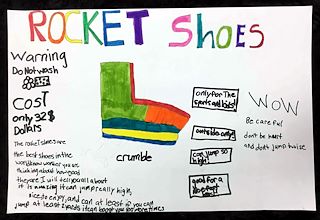 ROCKET SHOES
Warning
Do Not wash
COST
only 32$
Dollars
The rocket shoes are
the best shoes in the
world how wonder you are
thinking about how good
they are I will tell you all about
it is amazing it can jump really high,
nice to enjoy, and can at least if you can
jump at least 2 yards it can boost you 100 more times
crumble
only for The
sports and kids!
outside only!!
can jump so
high!
good for a
WOW
Be careful
don't be hert
and don't jump twise